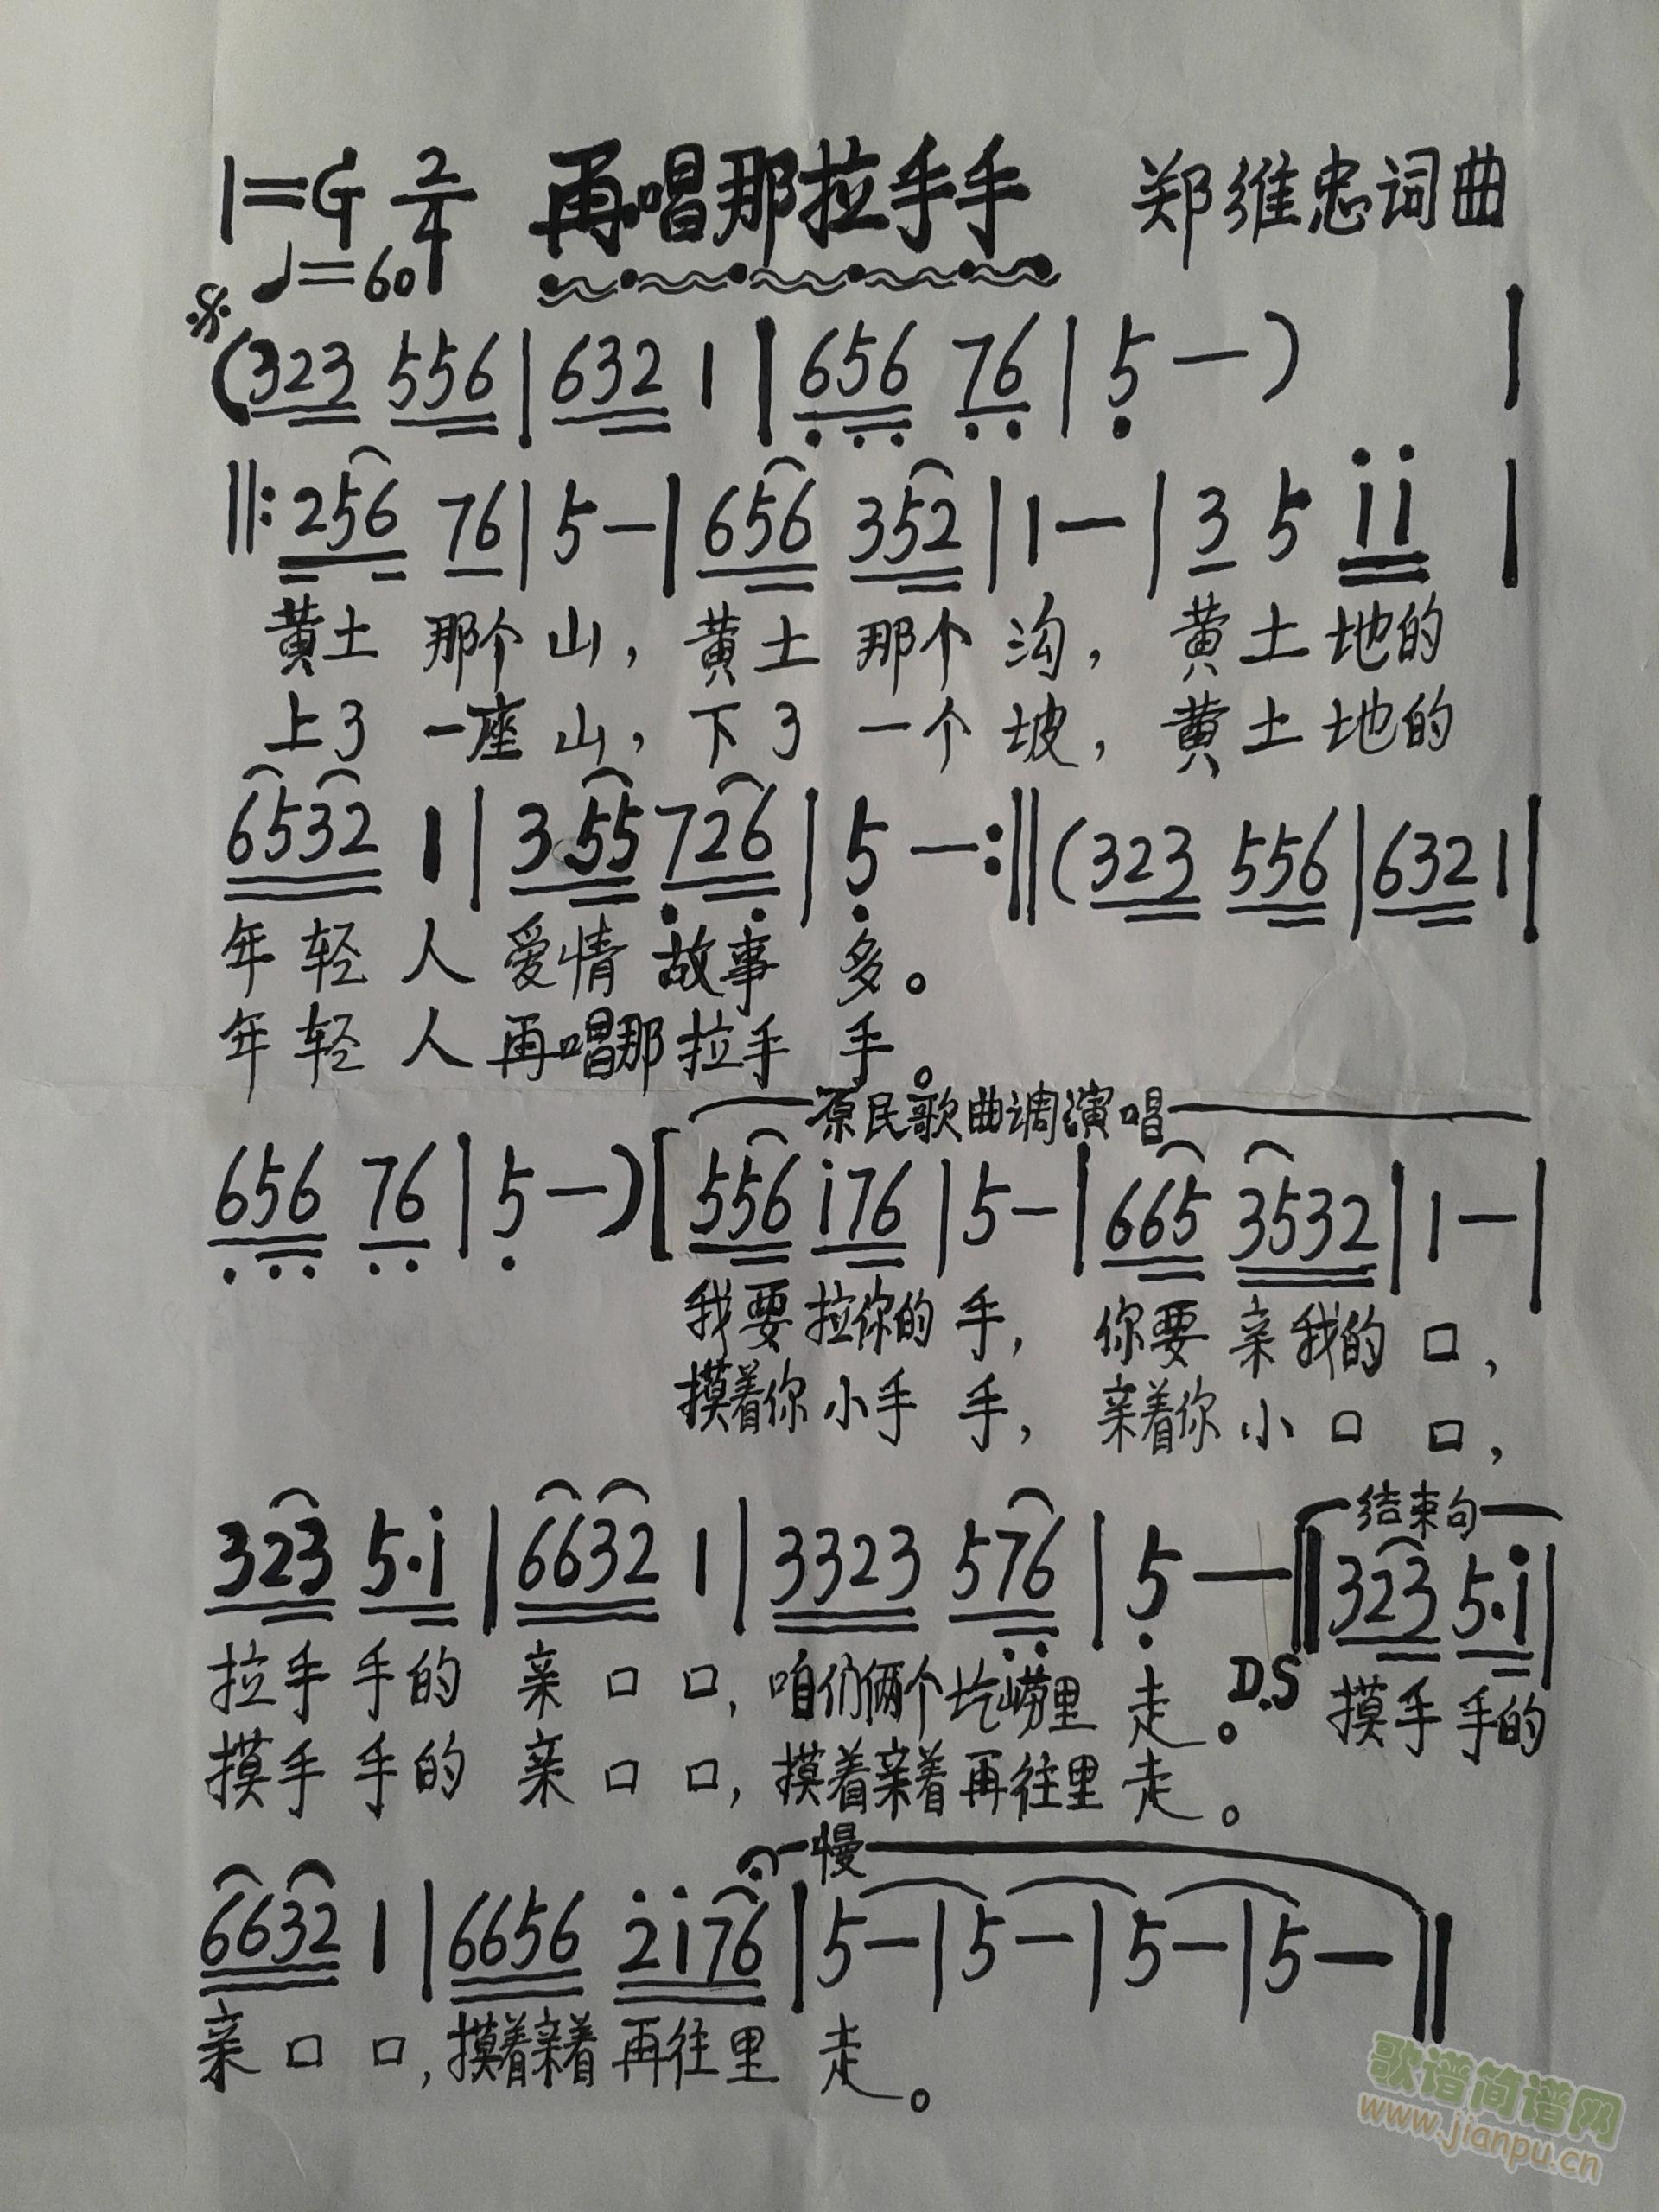 1=G 2/4 再唱那拉手手 郑维忠词曲
♩=60
(323 556|632 1|656 76|5—)|
‖:256 76|5—|656 352|1—|3 5 ii|
黄土 那个 山, 黄土 那个 沟, 黄土地的
上了 一座山, 下了 一个 坡, 黄土地的
6532 1|3 55 726|5 —:‖(323 556|632 1|
年轻人 爱情 故事 多。
年轻人 再唱那拉手 手。
原民歌曲调演唱
656 76|5—)[556 i76|5—|665 3532|1—|
我要拉你的手, 你要亲我的口,
摸着你小手 手, 亲着你小口 口,
结束句
323 5·i|6632 1|3323 576|5 —‖323 5·i|
拉手手的 亲口口, 咱们俩个圪崂里 走。D.S 摸手手的
摸手手的 亲口口, 摸着亲着再往里走。
慢
6632 1|6656 2i76|5—|5—|5—|5—‖
亲口口, 摸着亲着 再往里 走。
歌谱简谱网
www.jianpu.cn